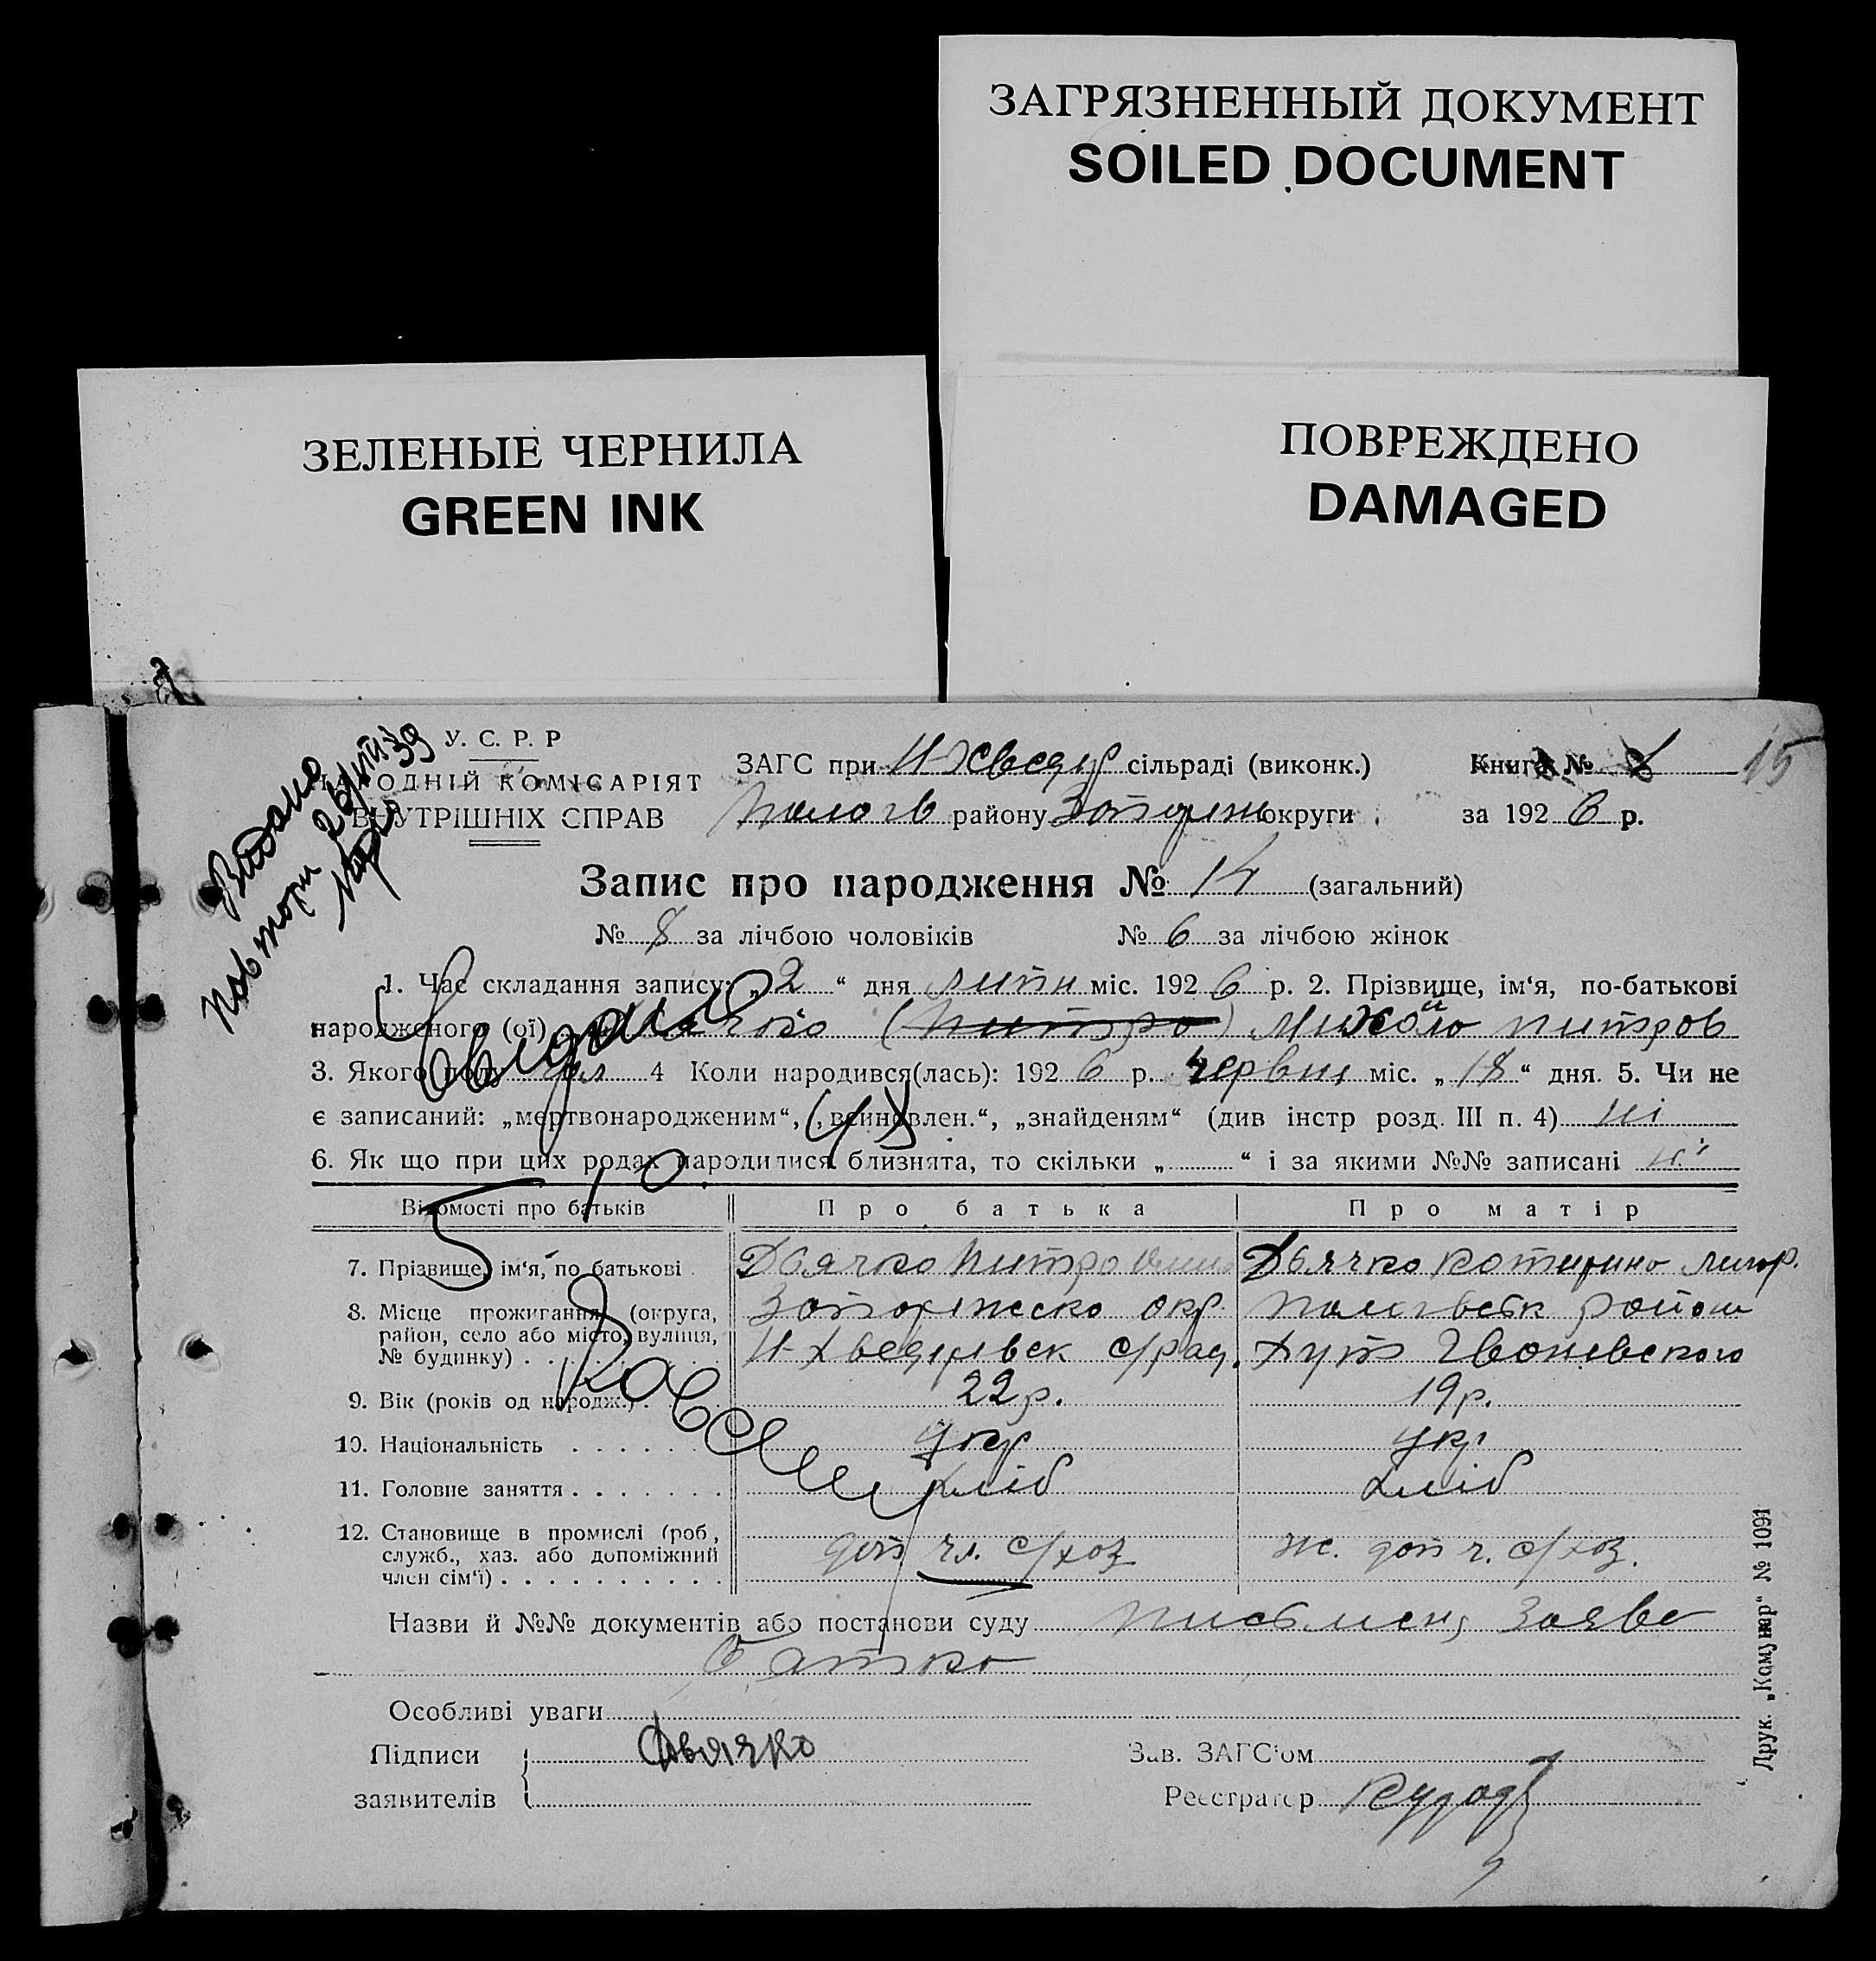 ЗАГРЯЗНЕННЫЙ ДОКУМЕНТ
SOILED DOCUMENT
ЗЕЛЕНЫЕ ЧЕРНИЛА
GREEN INK
ПОВРЕЖДЕНО
DAMAGED
Видано
повторн 26/VIII 39
У. С. Р. Р
НАРОДНІЙ КОМІСАРІЯТ
ВНУТРІШНІХ СПРАВ
ЗАГС при Н-Хведур сільраді (виконк.) Книга №
Пологів району Запоріж округи за 192 6 р.
15
Запис про народження № 14 (загальний)
№ 8 за лічбою чоловіків № 6 за лічбою жінок
1. Час складання запису: „ 2 “ дня липн міс. 192 6 р. 2. Прізвище, ім'я, по-батькові
народженого (ої) Двячко (Питро) Михайло Питров
3. Якого полу чол 4 Коли народився(лась): 192 6 р. червня міс. „ 18 “ дня. 5. Чи не
є записаний: „мертвонародженим“, „всиновлен.“, „знайденям“ (див інстр розд. III п. 4) ні
6. Як що при цих родах народилися близнята, то скільки „ “ і за якими №№ записані ні
Відомості про батьків Про батька Про матір
7. Прізвище, ім'я, по батькові Двячко Питро Двячко Катирина Григор.
8. Місце прожигання (округа, Запоріжско окр. Пологівск район
район, село або місто, вулиця, Н-Хведурівск с/рад. Хут
№ будинку)
9. Вік (років од народж.) 22 р. 19 р.
10. Національність Укр Укр
11. Головне заняття Хліб Хліб
12. Становище в промислі (роб, доп чл. с/хоз ж. доп ч. с/хоз.
служб., хаз. або допоміжний
член сім'ї)
Назви й №№ документів або постанови суду письмена заява
батька
Особливі уваги
Підписи Двячко Зав. ЗАГС'ом
заявителів Реєстратор
Друк. „Комунар“ № 1091